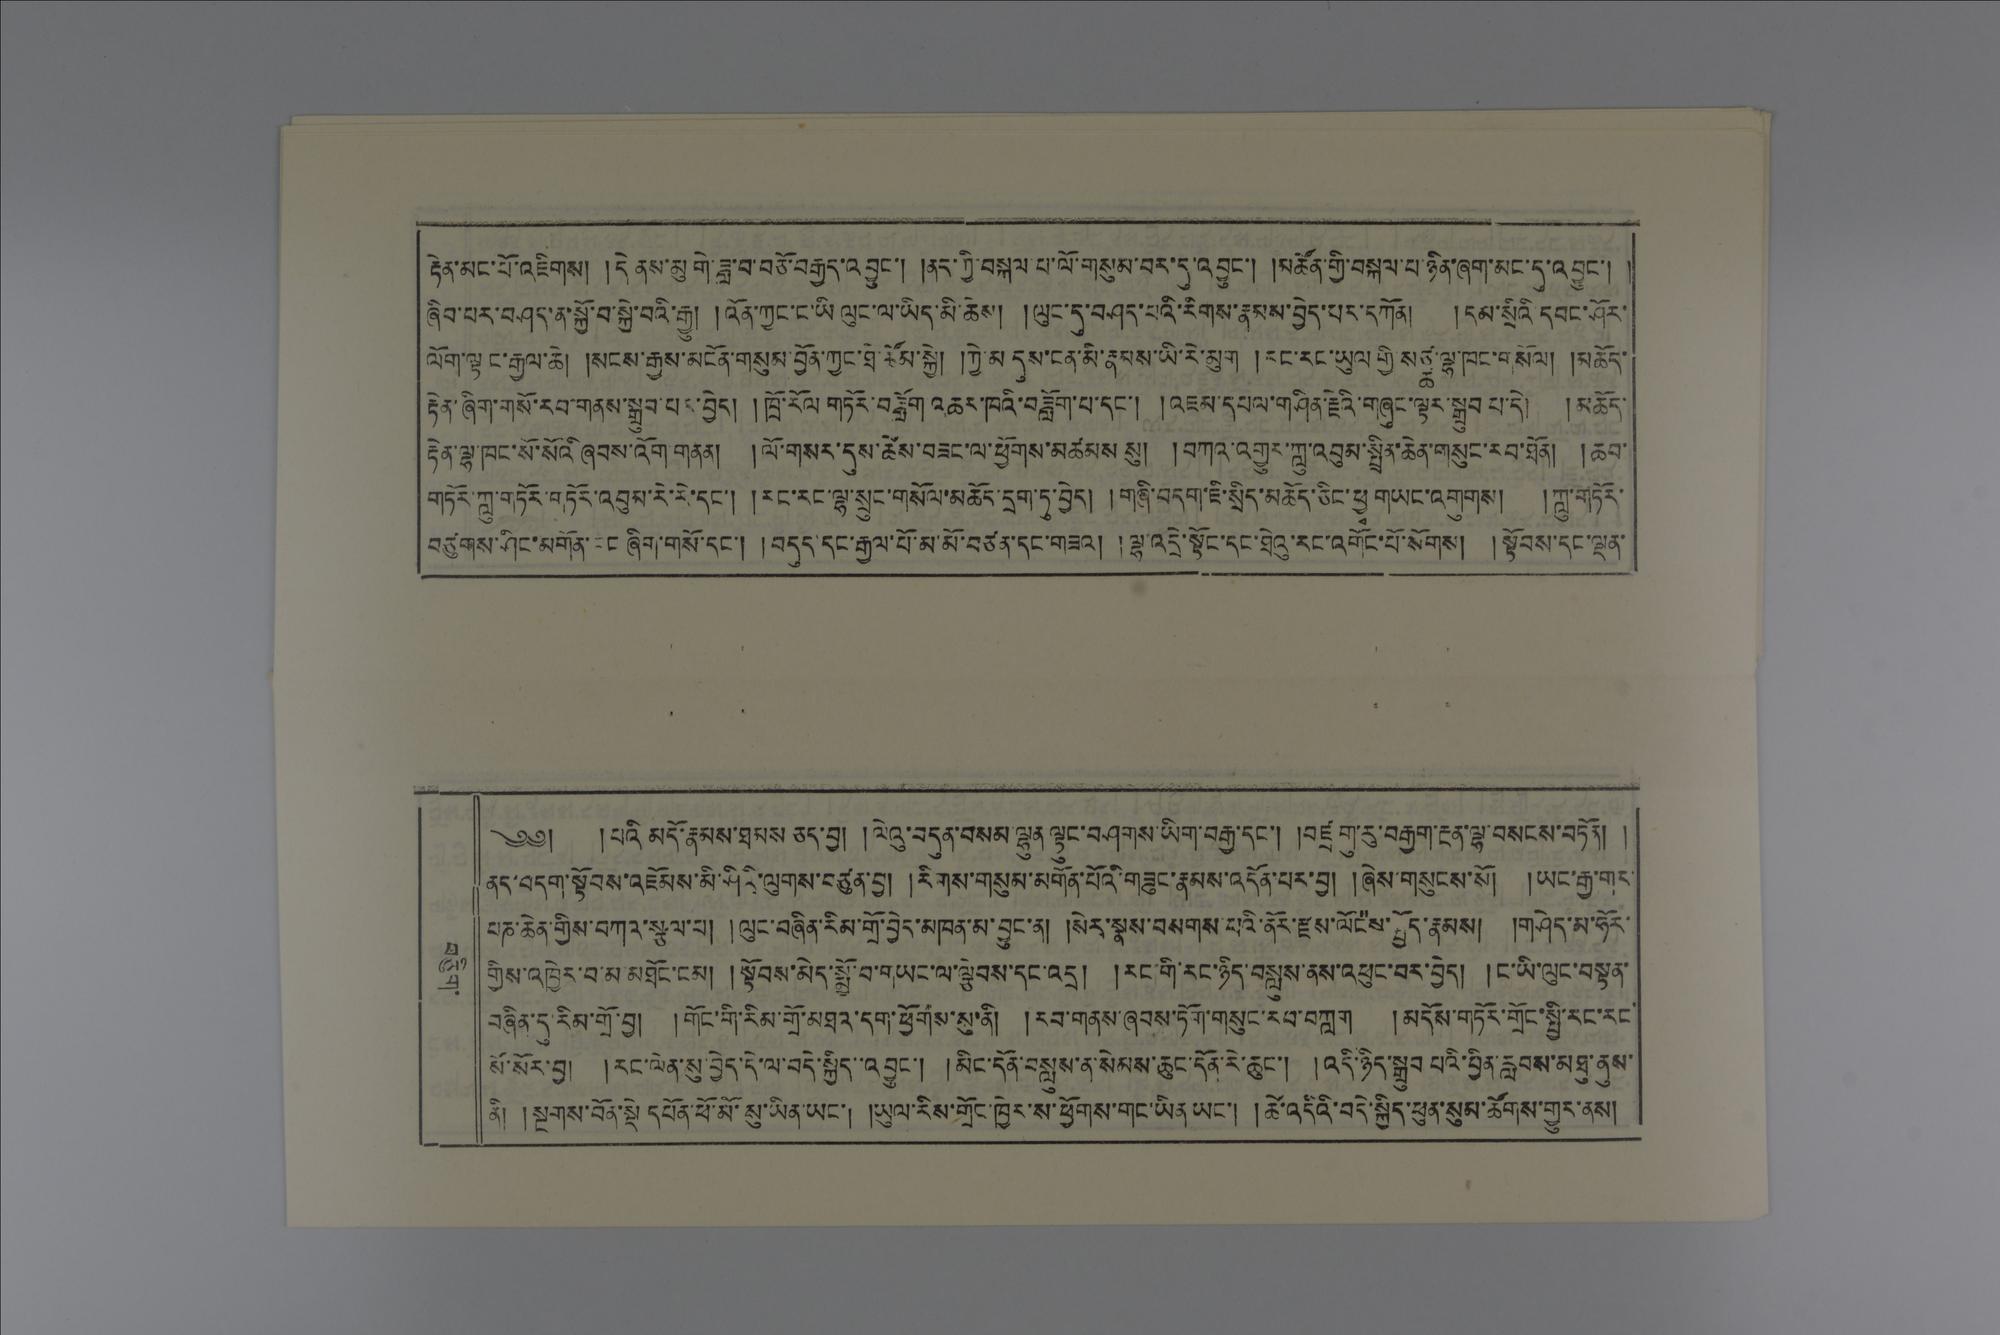 རྟེན་མང་པོ་འཇིགས། །དེ་ནས་མུ་གེ་ཟླ་བ་བཅོ་བརྒྱད་འབྱུང་། །ནད་ཀྱི་བསྐལ་པ་ལོ་གསུམ་བར་དུ་འབྱུང་། །མཚོན་གྱི་བསྐལ་པ་ཉིན་ཞག་མང་དུ་འབྱུང་། །
ཞིབ་པར་བཤད་ན་སྐྱོ་བ་སྐྱེ་བའི་རྒྱུ། །འོན་ཀྱང་ང་ཡི་ལུང་ལ་ཡིད་མི་ཆེས། །ལུང་དུ་བཤད་པའི་རིགས་རྣམས་བྱེད་པར་དཀོན། །དམ་སྲིའི་དབང་ཤོར་
ལོག་ལྟ་ང་རྒྱལ་ཆེ། །སངས་རྒྱས་མངོན་གསུམ་བྱོན་ཀྱང་ཐེ་ཚོམ་སྐྱེ། །ཀྱེ་མ་དུས་ངན་མི་རྣམས་ཡི་རེ་མུག །རང་རང་ཡུལ་གྱི་ས་ལྷ་ཁང་བ་སོལ། །མཆོད་
རྟེན་ཞིག་གསོ་རབ་གནས་སྒྲུབ་པར་བྱེད། །ཁྲོ་རོལ་གཏོར་བཟློག་འཆར་ཁའི་བཟློག་པ་དང་། །འཇམ་དཔལ་གཤིན་རྗེའི་གཞུང་ལྟར་སྒྲུབ་པ་དེ། །མཆོད་
རྟེན་ལྷ་ཁང་སོ་སོའི་ཞབས་འོག་གནན། །ལོ་གསར་དུས་ཚེས་བཟང་ལ་ཕྱོགས་མཚམས་སུ། །བཀའ་འགྱུར་ཀླུ་འབུམ་སྤྲིན་ཆེན་གསུང་རབ་ཐོན། །ཆབ་
གཏོར་ཀླུ་གཏོར་བ་ཏོར་འབུམ་རེ་རེ་དང་། །རང་རང་ལྷ་སྲུང་གསོལ་མཆོད་དྲག་ཏུ་བྱེད། །གཞི་བདག་ཇི་སྲིད་མཆོད་ཅིང་ཕྱྭ་གཡང་འགུགས། །ཀླུ་གཏོར་
བཙུགས་ཤིང་མགོན་ཁང་ཞིག་གསོ་དང་། །བདུད་དང་རྒྱལ་པོ་མ་མོ་བཙན་དང་གཟའ། །ལྷ་འདྲེ་སྟོང་དང་ཐེའུ་རང་འགོང་པོ་སོགས། །སྟོབས་དང་ལྡན་
༄༅། །པའི་མདོ་རྣམས་ཐམས་ཅད་བྱ། །ལེའུ་བདུན་བསམ་ལྷུན་ལྟུང་བཤགས་ཡིག་བརྒྱ་དང་། །བཛྲ་གུ་རུ་བརྒྱག་ངན་ལྷ་བསངས་བཏོན། །
ནད་བདག་སྟོབས་འཇོམས་མི་ཤིའི་ལུགས་ང་ཙུན་བྱ། །རིགས་གསུམ་མགོན་པོའི་གཟུང་རྣམས་འདོན་པར་བྱ། །ཞེས་གསུངས་སོ། །ཡང་རྒྱ་གར་
པཎ་ཆེན་གྱིས་བཀའ་སྩལ་པ། །ལུང་བཞིན་རིམ་གྲོ་བྱེད་མཁན་མ་བྱུང་ན། །སེར་སྣས་བསགས་པའི་ནོར་རྫས་ལོངས་སྤྱོད་རྣམས། །གཤེད་མ་ཧོར་
གྱིས་འཁྱེར་བ་མ་མཐོང་ངམ། །སྟོབས་མེད་སྤྲོ་བ་གཡང་ལ་ལྷེབས་དང་འདྲ། །རང་གི་རང་ཉིད་བསླུས་ནས་འཕུང་བར་བྱེད། །ང་ཡི་ལུང་བསྟན་
བཞིན་དུ་རིམ་གྲོ་བྱ། །གོང་གི་རིམ་གྲོ་མཐའ་དག་ཕྱོགས་སུ་ནི། །རབ་གནས་ཞབས་ཏོག་གསུང་རབ་བཀླག །མདོས་གཏོར་གྲོང་སྤྱི་རང་རང་
སོ་སོར་བྱ། །རང་ལེན་སུ་བྱེད་དེ་ལ་བདེ་སྐྱིད་འབྱུང་། །མིང་དོན་བསླུས་ན་སེམས་ཆུང་དོན་རེ་ཆུང་། །འདི་ཉིད་སྒྲུབ་པའི་བྱིན་རླབས་མཐུ་ནུས་
ནི། །སྔགས་བོན་སྡེ་དཔོན་ཕོ་མོ་སུ་ཡིན་ཡང་། །ཡུལ་རིས་གྲོང་ཁྱེར་ས་ཕྱོགས་གང་ཡིན་ཡང་། །ཚེ་འདིའི་བདེ་སྐྱིད་ཕུན་སུམ་ཚོགས་གྱུར་ནས།